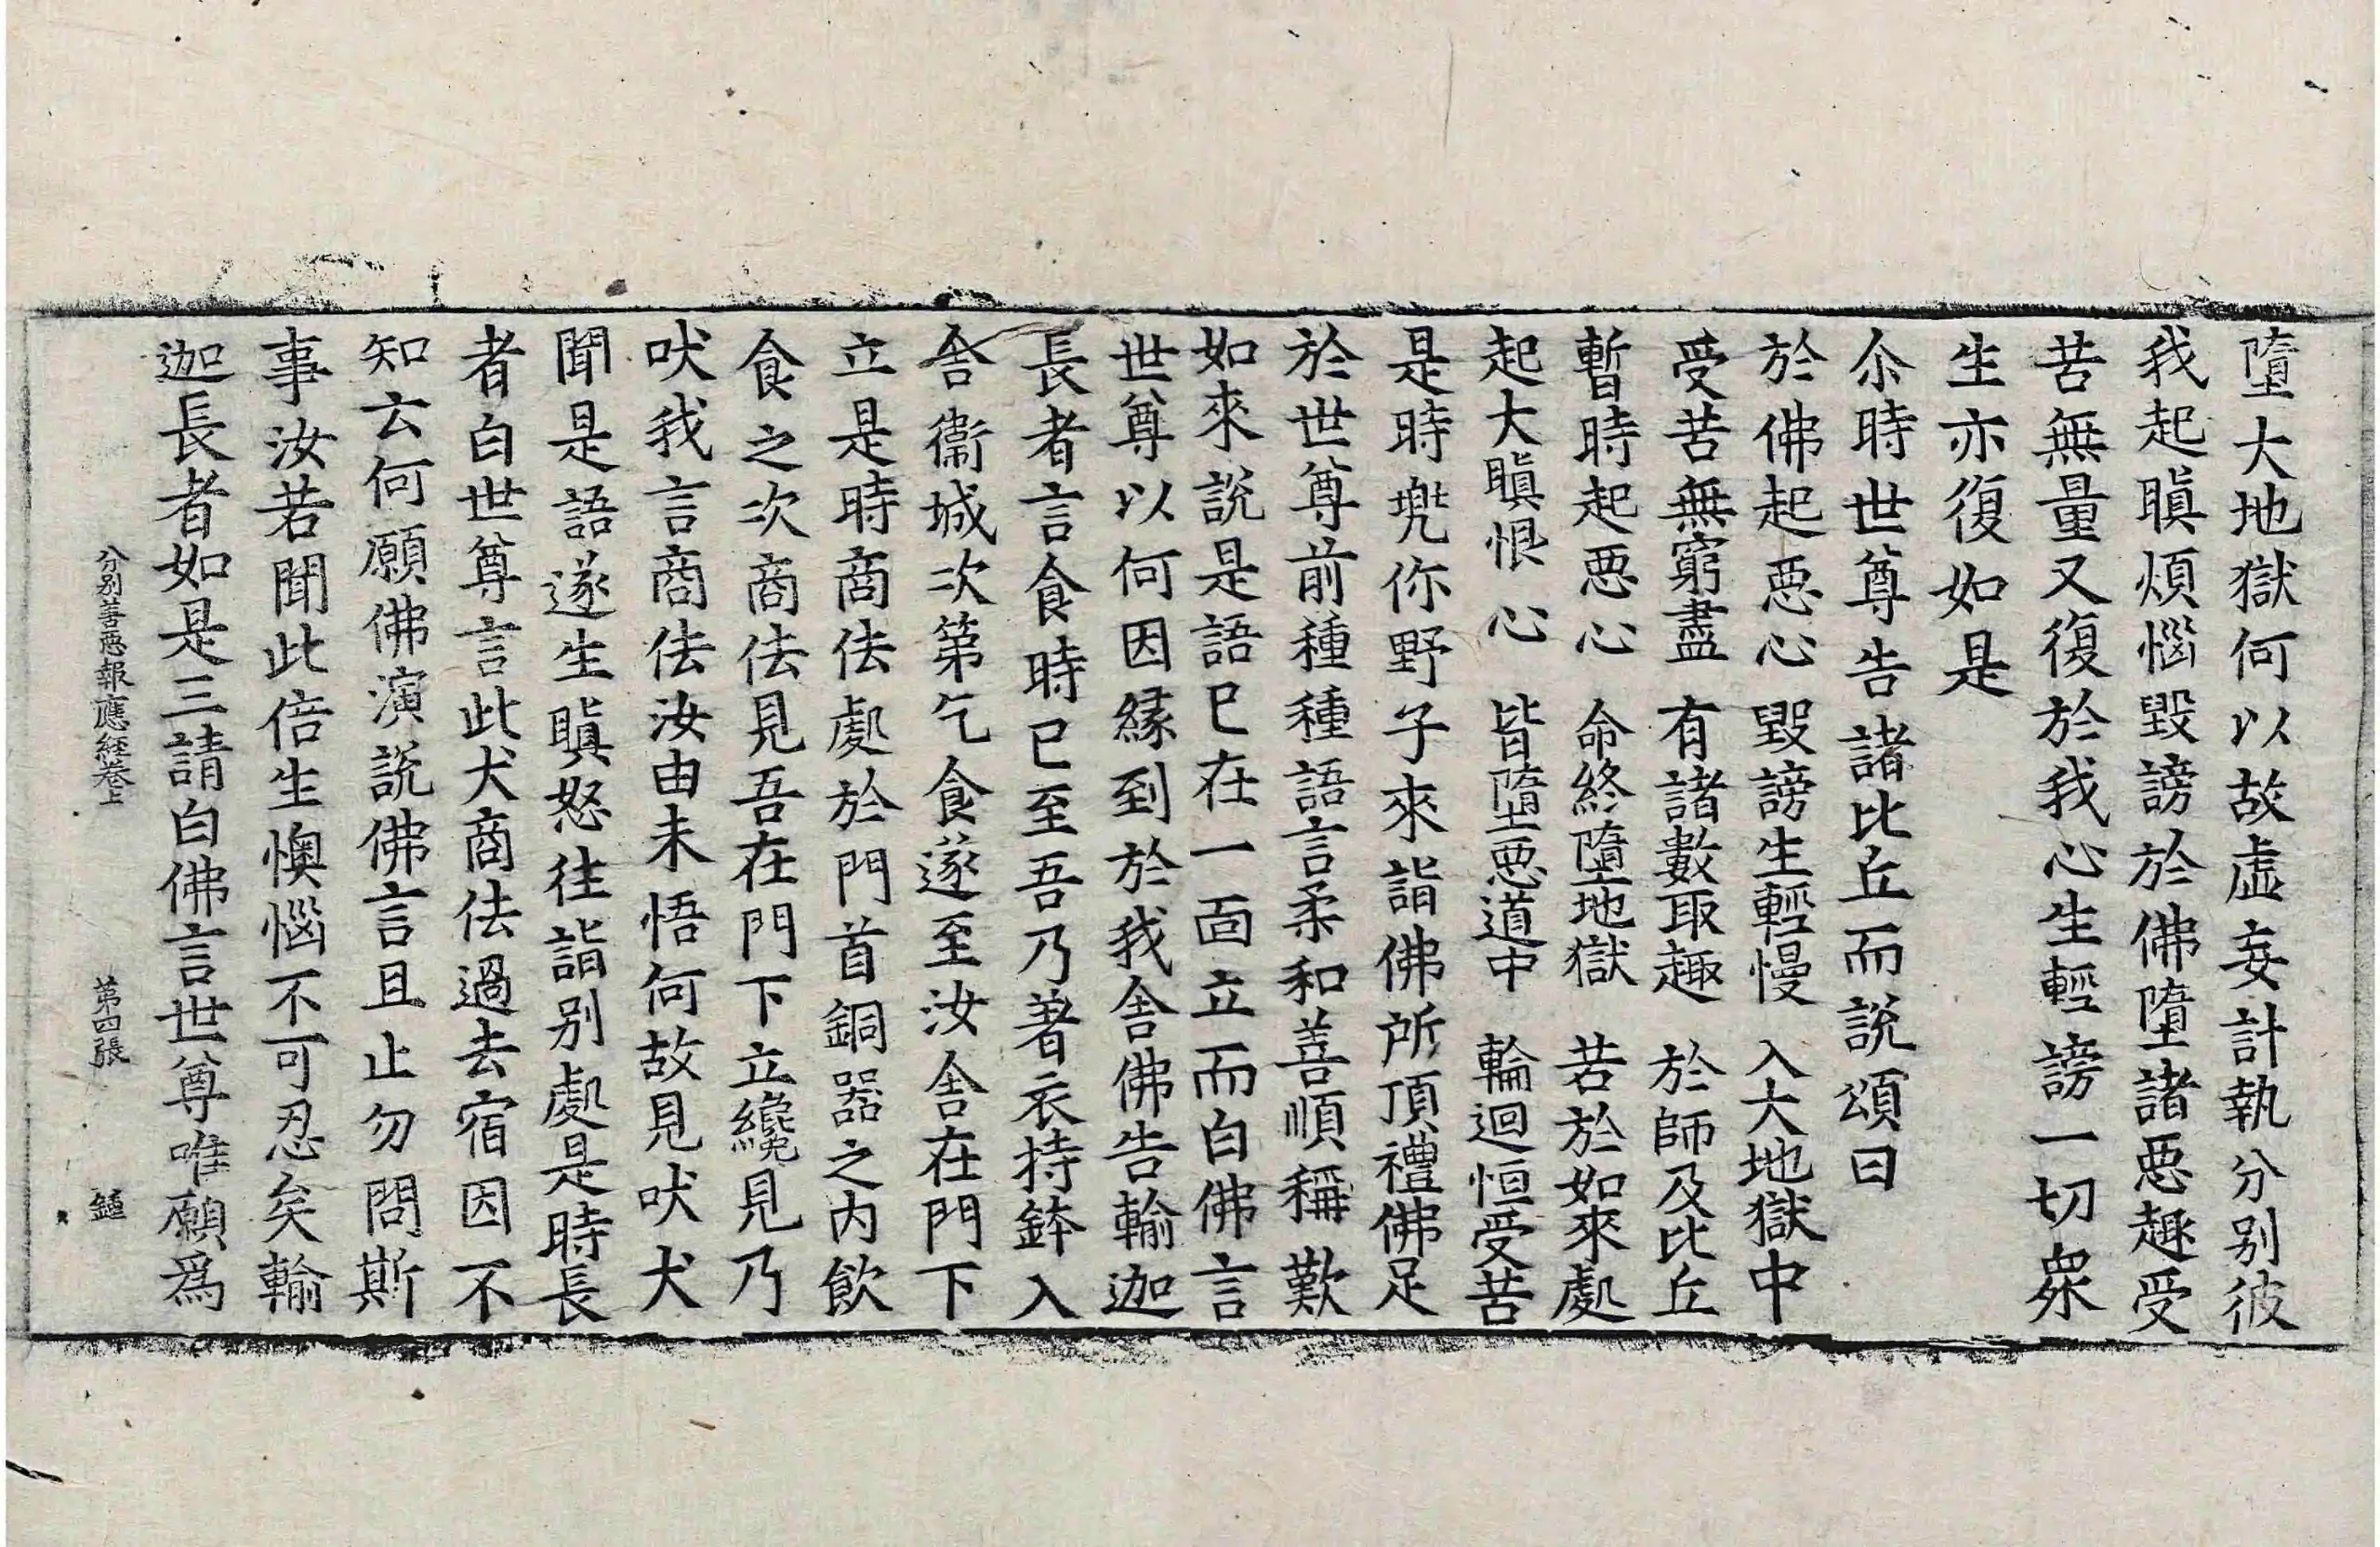 墮大地獄何以故虛妄計執分别彼
我起瞋煩惱毀謗於佛墮諸惡趣受
苦無量又復於我心生輕謗一切衆
生亦復如是
尒時世尊告諸比丘而說頌曰
於佛起惡心　毀謗生輕慢　入大地獄中
受苦無窮盡　有諸數取趣　於師及比丘
暫時起惡心　命終墮地獄　若於如來處
起大瞋恨心　皆墮惡道中　輪迴恒受苦
是時兠你野子來詣佛所頂禮佛足
於世尊前種種語言柔和善順稱歎
如來說是語已在一面立而白佛言
世尊以何因緣到於我舍佛告輸迦
長者言食時已至吾乃著衣持鉢入
舍衞城次第乞食遂至汝舍在門下
立是時商佉處於門首銅器之内飲
食之次商佉見吾在門下立纔見乃
吠我言商佉汝由未悟何故見吠犬
聞是語遂生瞋怒往詣别處是時長
者白世尊言此犬商佉過去宿因不
知云何願佛演說佛言且止勿問斯
事汝若聞此倍生懊惱不可忍矣輸
迦長者如是三請白佛言世尊唯願爲
分别善惡報應經卷上　第四張　鍾